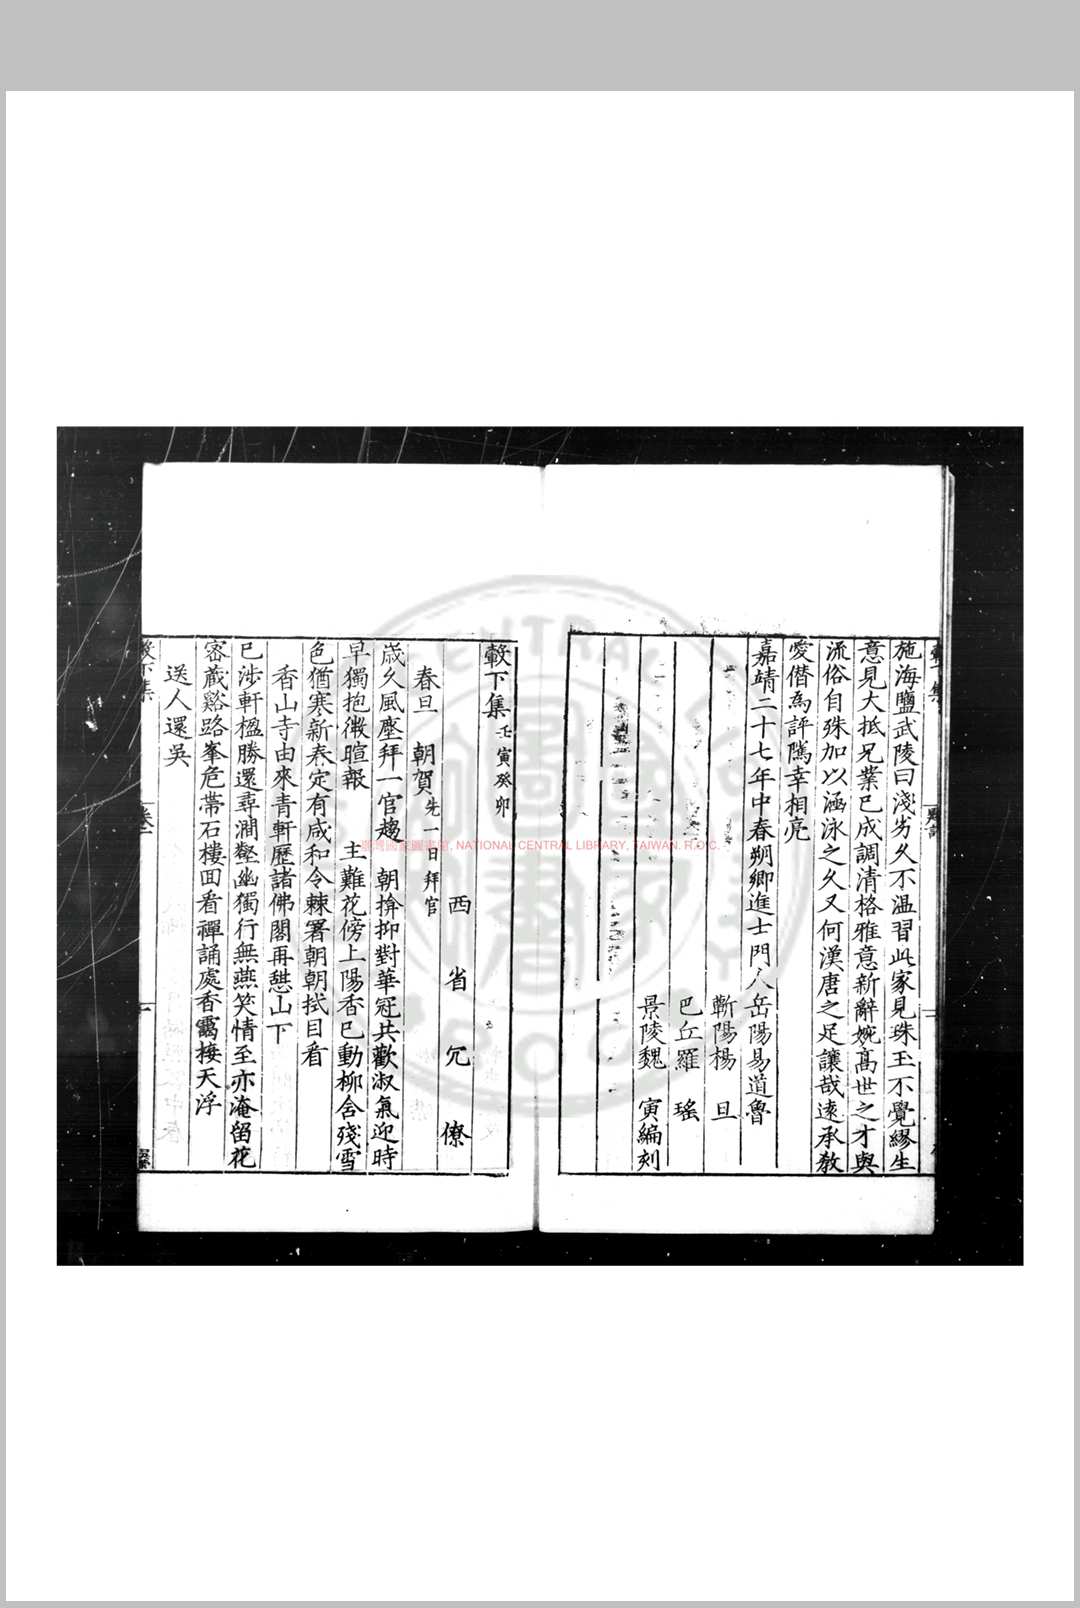 施海鹽武陵曰淺劣久不温習此家見珠玉不覺繆生
意見大抵兄業已成調清格雅意新辭婉髙世之才與
流俗自殊加以涵泳之久又何漢唐之足讓哉遠承教
愛僭為評隲幸相亮
嘉靖二十七年中春朔鄉進士門人岳陽易道魯
蘄陽楊 旦
巴丘羅 瑤
景陵魏 寅編刻
轂下集 壬寅癸卯
西省冗僚
春旦 朝賀 先一日拜官
歲久風塵拜一官趨 朝拚抑對華冠共歡淑氣迎時
早獨抱微暄報 主難花傍上陽香已動柳含殘雪
色猶寒新春定有咸和令棘署朝朝拭目看
香山寺由來青軒歷諸佛閣再憇山下
已涉軒楹勝還尋澗壑幽獨行無燕笑情至亦淹留花
密藏谿路峯危帶石樓回看禪誦處香靄接天浮
送人還吳
轂下集
卷一
臺灣國家圖書館, NATIONAL CENTRAL LIBRARY, TAIWAN, R.O.C.